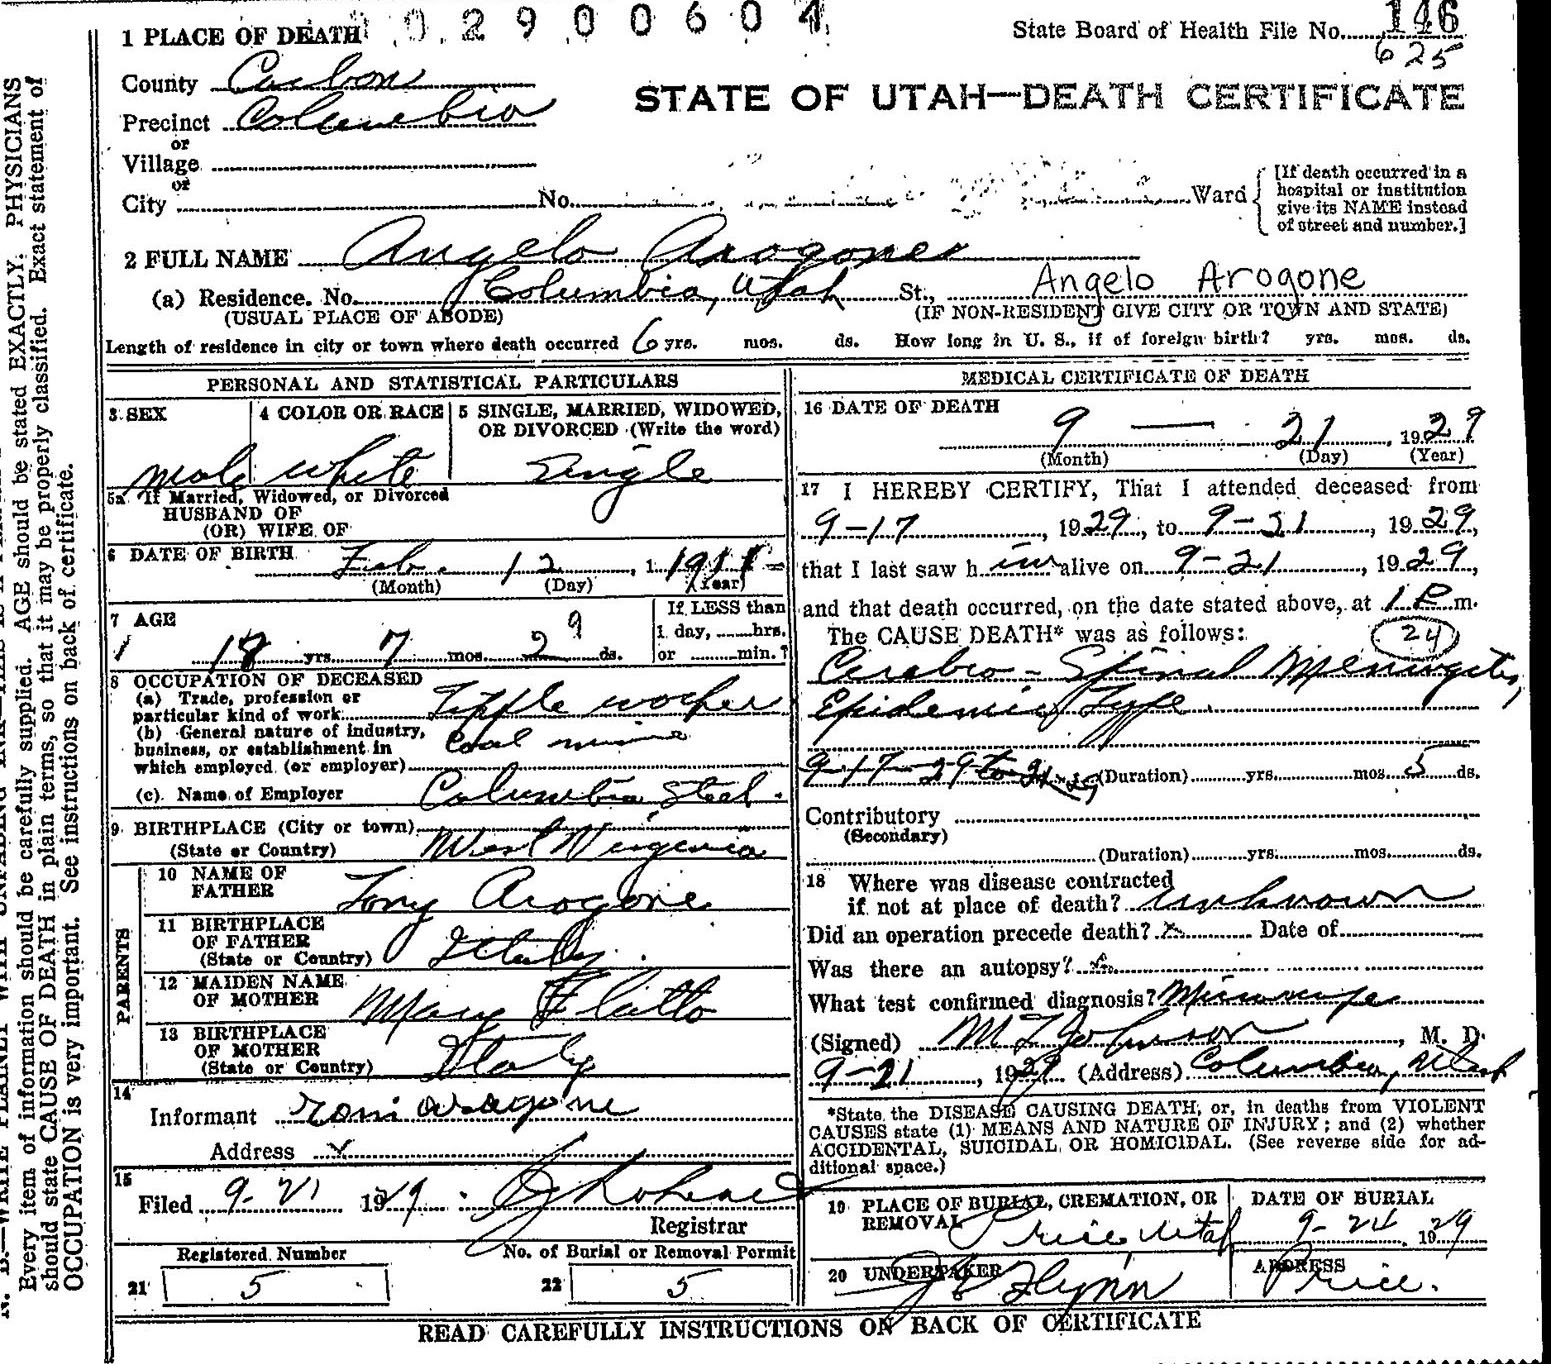 1 PLACE OF DEATH 0 2 9 0 0 6 0 4
State Board of Health File No. 146
625
County Carbon
STATE OF UTAH—DEATH CERTIFICATE
Precinct Columbia
or
Village
or
City No. Ward
[If death occurred in a hospital or institution give its NAME instead of street and number.]
2 FULL NAME Angelo Arogone
(a) Residence. No. Columbia, Utah St., Angelo Arogone
(USUAL PLACE OF ABODE) (IF NON-RESIDENT GIVE CITY OR TOWN AND STATE)
Length of residence in city or town where death occurred 6 yrs. mos. ds. How long in U. S., if of foreign birth? yrs. mos. ds.
PERSONAL AND STATISTICAL PARTICULARS
3 SEX 4 COLOR OR RACE 5 SINGLE, MARRIED, WIDOWED,
OR DIVORCED (Write the word)
Male white Single
5a If Married, Widowed, or Divorced
HUSBAND OF
(OR) WIFE OF
6 DATE OF BIRTH Feb. 12, 1911
(Month) (Day) (Year)
7 AGE If LESS than
1 day, hrs.
18 yrs. 7 mos. 29 ds. or min.?
8 OCCUPATION OF DECEASED
(a) Trade, profession or
particular kind of work Tipple worker
(b) General nature of industry,
business, or establishment in
which employed (or employer) Coal mine
(c) Name of Employer Columbia Steel.
9 BIRTHPLACE (City or town)
(State or Country) West Virginia
PARENTS
10 NAME OF
FATHER Tony Arogone
11 BIRTHPLACE
OF FATHER
(State or Country) Italy.
12 MAIDEN NAME
OF MOTHER Mary Flatto
13 BIRTHPLACE
OF MOTHER
(State or Country) Italy
14
Informant Toni Aragone
Address
15
Filed 9-21 1929.
Registrar
Registered Number No. of Burial or Removal Permit
21 5 22 5
MEDICAL CERTIFICATE OF DEATH
16 DATE OF DEATH
9 — 21, 1929
(Month) (Day) (Year)
17 I HEREBY CERTIFY, That I attended deceased from
9-17, 1929, to 9-21, 1929,
that I last saw h im alive on 9-21, 1929,
and that death occurred, on the date stated above, at 1 P m.
The CAUSE DEATH* was as follows: 24
Cerebro-Spinal Meningitis,
Epidemic Type.
9-17-29 to (Duration) yrs. mos. 5 ds.
Contributory
(Secondary)
(Duration) yrs. mos. ds.
18 Where was disease contracted
if not at place of death? unknown
Did an operation precede death? Date of
Was there an autopsy?
What test confirmed diagnosis? Microscope
(Signed) M L Johnson, M. D.
9-21, 1929 (Address) Columbia, Utah
*State the DISEASE CAUSING DEATH, or, in deaths from VIOLENT
CAUSES state (1) MEANS AND NATURE OF INJURY; and (2) whether
ACCIDENTAL, SUICIDAL OR HOMICIDAL. (See reverse side for ad-
ditional space.)
19 PLACE OF BURIAL, CREMATION, OR
REMOVAL Price, Utah
DATE OF BURIAL
9-24 1929
20 UNDERTAKER Flynn
ADDRESS Price.
READ CAREFULLY INSTRUCTIONS ON BACK OF CERTIFICATE
Every item of information should be carefully supplied. AGE should be stated EXACTLY. PHYSICIANS
should state CAUSE OF DEATH in plain terms, so that it may be properly classified. Exact statement of
OCCUPATION is very important. See instructions on back of certificate.